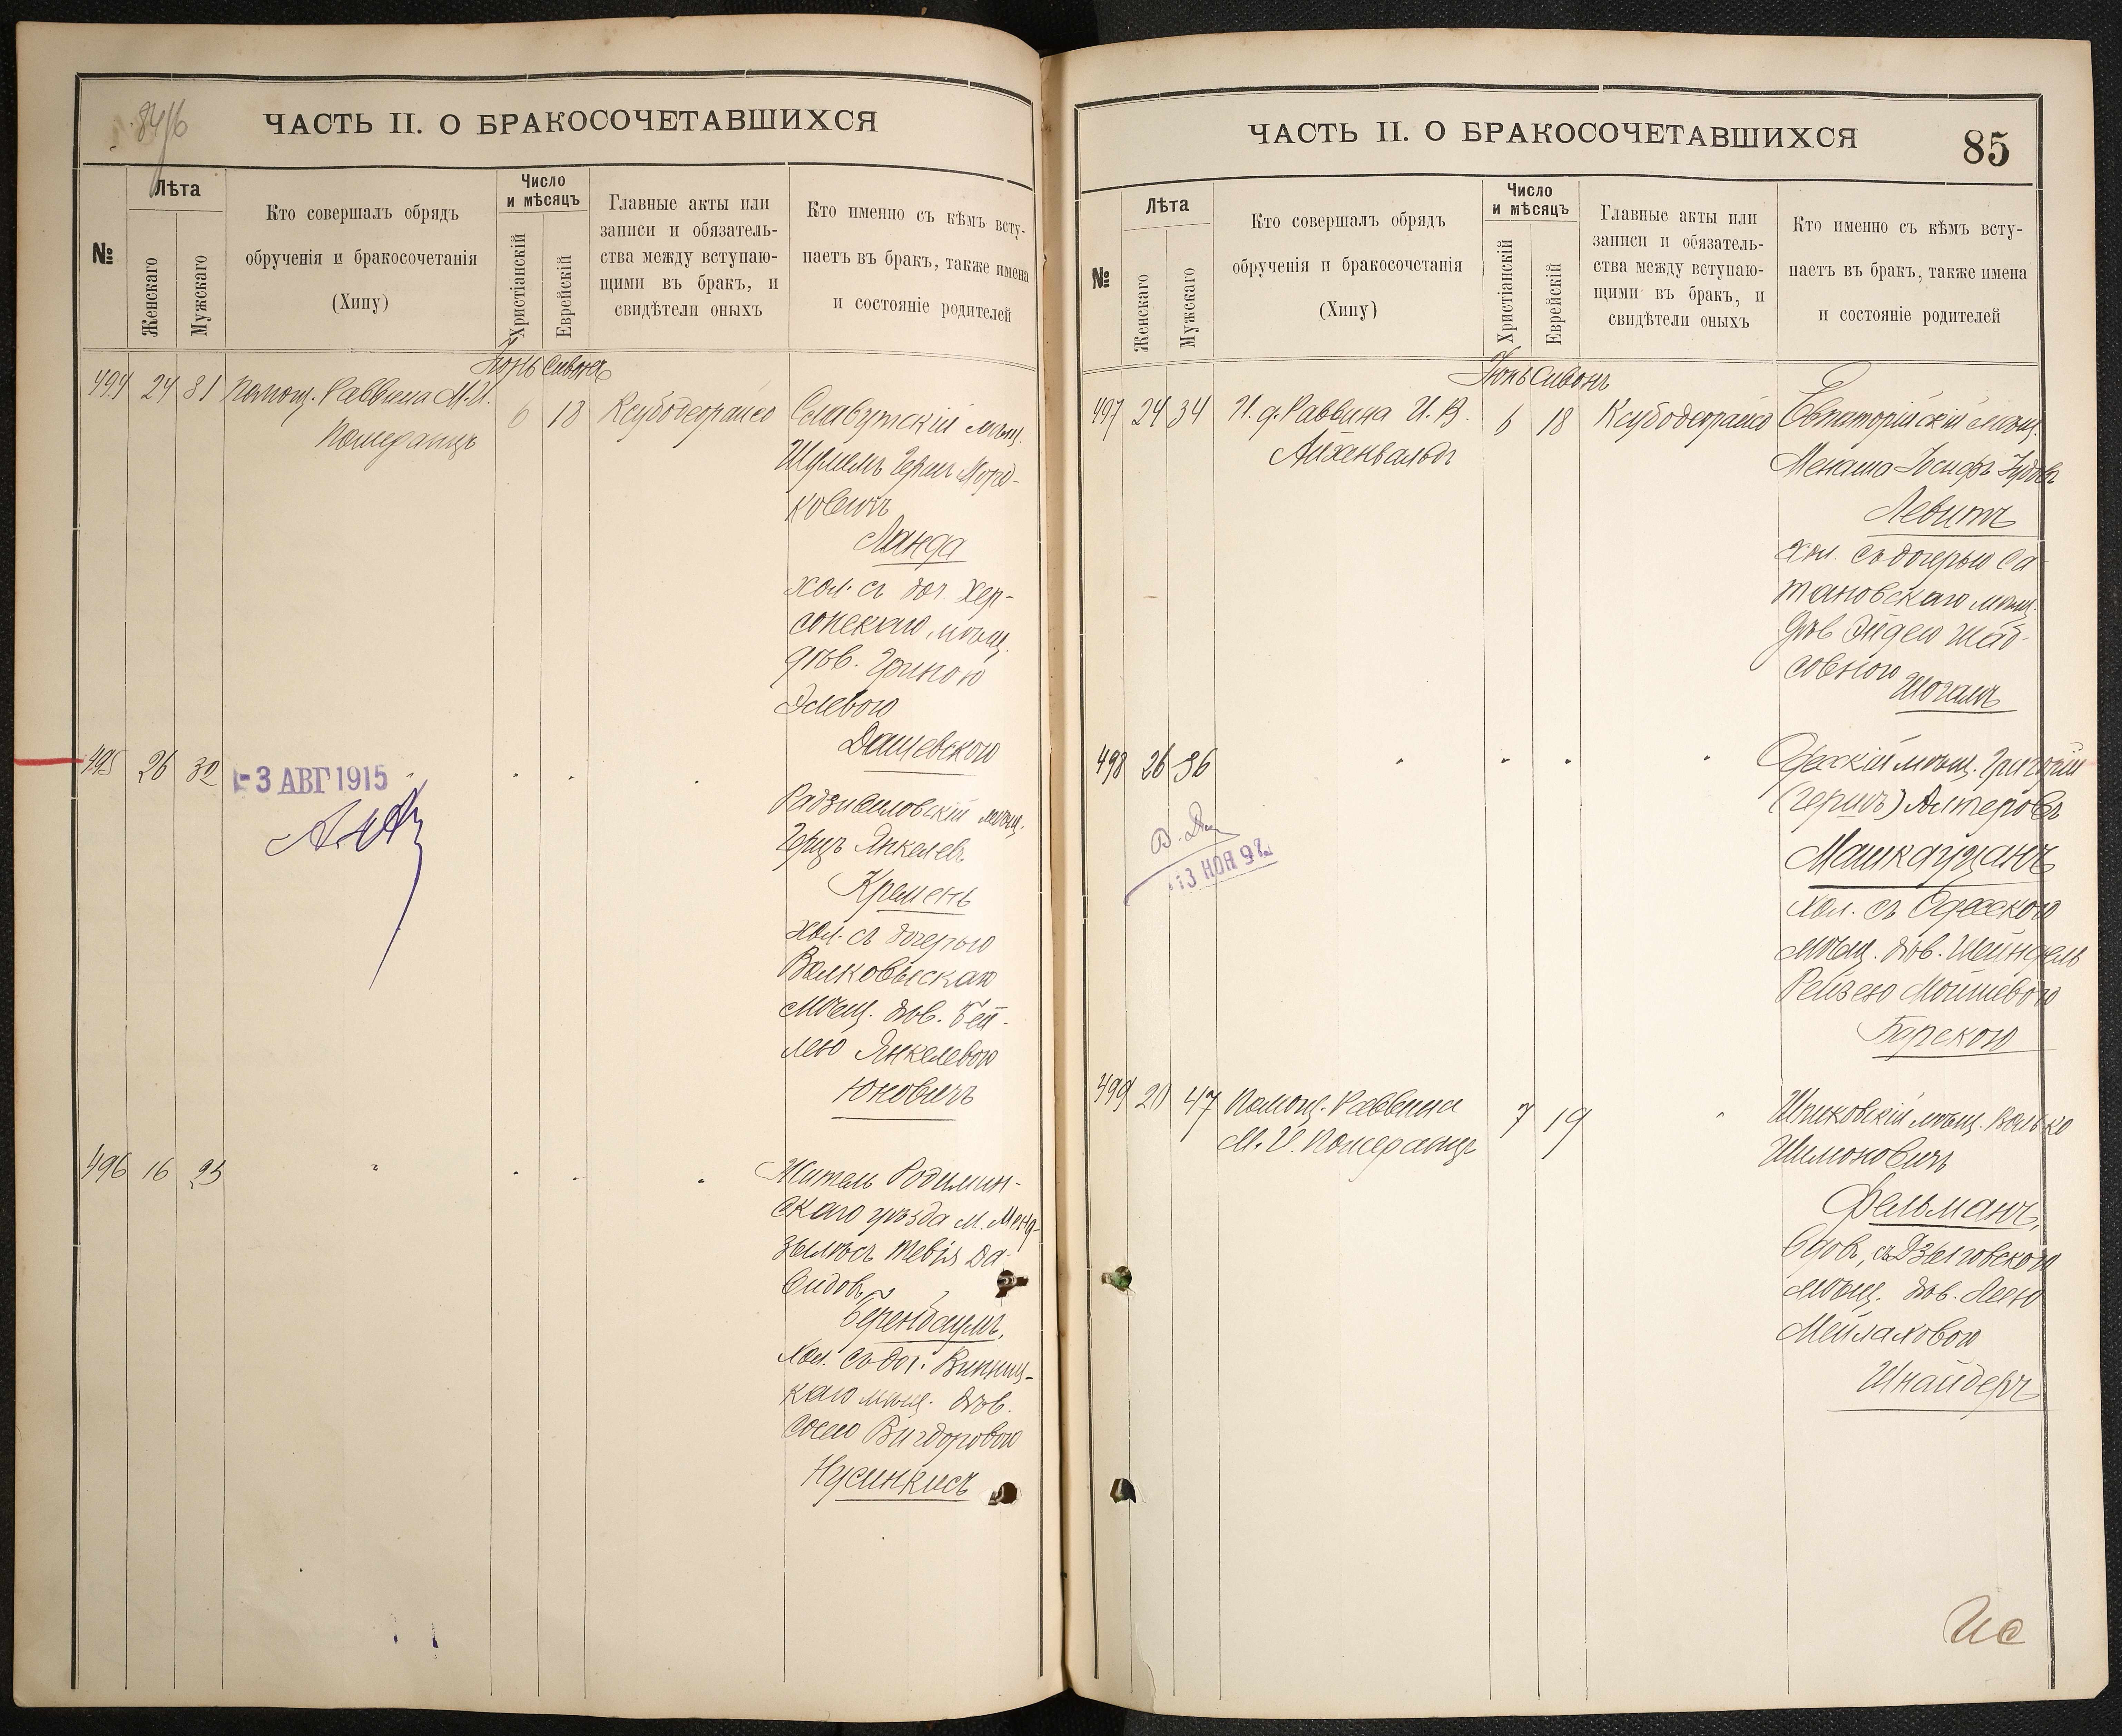 ЧАСТЬ II. О БРАКОСОЧЕТАВШИХСЯ
№
Лѣта
Женскаго
Мужскаго
Кто совершалъ обрядъ
обрученія и бракосочетанія
(Хипу)
Число
и мѣсяцъ
Христіанскій
Еврейскій
Главные акты или
записи и обязатель-
ства между вступаю-
щими въ бракъ, и
свидѣтели оныхъ
Кто именно съ кѣмъ всту-
паетъ въ бракъ, также имена
и состояніе родителей
Іюнь Сивонъ
494 24 31 Помощ. Раввина М. И.
Померанцъ
6 18
Славутскій мѣщ.
Шулемъ Герш Морд-
ковичъ
Ланда
хол. съ доч. Хер-
сонскаго мѣщ.
дѣв.
Дашевскою
495 26 32
-3 АВГ 1915
Радзивиловскій мѣщ.
Герцъ Янкелев.
Кремень
хол. съ дочерью
Волковыскаго
мѣщ. дѣв. Бей-
лею Янкелевою
Юновичъ
496 16 23
Житель Радимин-
скаго уѣзда м.
Тевія Да-
видов.
Беренбаумъ,
хол. съ доч. Винниц-
каго мѣщ. дѣв.
Сосею Вигдоровою
Нусинкисъ
ЧАСТЬ II. О БРАКОСОЧЕТАВШИХСЯ
85
№
Лѣта
Женскаго
Мужскаго
Кто совершалъ обрядъ
обрученія и бракосочетанія
(Хипу)
Число
и мѣсяцъ
Христіанскій
Еврейскій
Главные акты или
записи и обязатель-
ства между вступаю-
щими въ бракъ, и
свидѣтели оныхъ
Кто именно съ кѣмъ всту-
паетъ въ бракъ, также имена
и состояніе родителей
Іюнь Сивонъ
497 24 34 И. д. Раввина И. В.
Айхенвальдъ
6 18
Евпаторійскій мѣщ.
Менаша Іосифъ Іудовъ
Левитъ
хол. съ дочерью Са-
тановскаго мѣщ.
дѣв. Эйдею Шаб-
совною
498 26 36
13 НОЯ 92
Одесскій мѣщ. Григорій
(Гершъ) Алтеровъ
Машкауцанъ
хол. съ Одесскою
мѣщ. дѣв. Шейндель
Рейзею Мойшевою
Барскою
499 20 47 Помощ. Раввина
М. И. Померанцъ
7 19
Шпиковскій мѣщ. Волько
Шимоновичъ
Фельманъ,
вдов., съ Дзыговскою
мѣщ. дѣв. Леею
Мейлаховою
Шнайдеръ